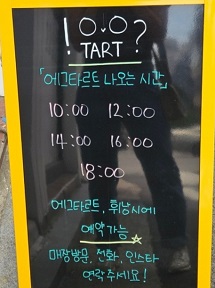 ! O.O ?
TART
「에그타르트 나오는 시간」
10:00 12:00
14:00 16:00
18:00
에그타르트, 휘낭시에
예약가능
매장방문, 전화, 인스타
연락주세요!